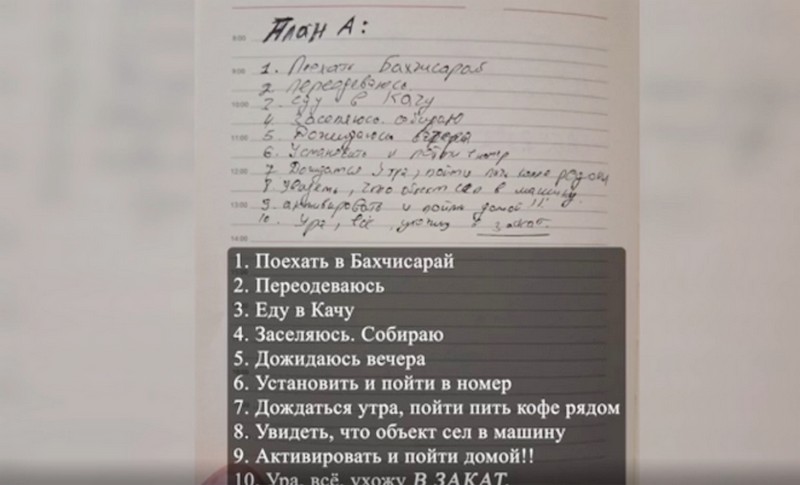 План А:
8:00
9:00
1. Поехать Бахчисарай
2 переодеваюсь.
10:00
3. еду в Качу
4 Заселяюсь. собираю
11:00
5. Дожидаюсь вечера
6. Установить и пойти в номер
12:00
7. Дождатся утра, пойти пить кофе рядом
8 увидеть, что объект сел в машину.
13:00
9. активировать и пойти домой!!
10. Ура, всё, ухожу в закат.
14:00
1. Поехать в Бахчисарай
2. Переодеваюсь
3. Еду в Качу
4. Заселяюсь. Собираю
5. Дожидаюсь вечера
6. Установить и пойти в номер
7. Дождаться утра, пойти пить кофе рядом
8. Увидеть, что объект сел в машину
9. Активировать и пойти домой!!
10. Ура, всё, ухожу В ЗАКАТ.